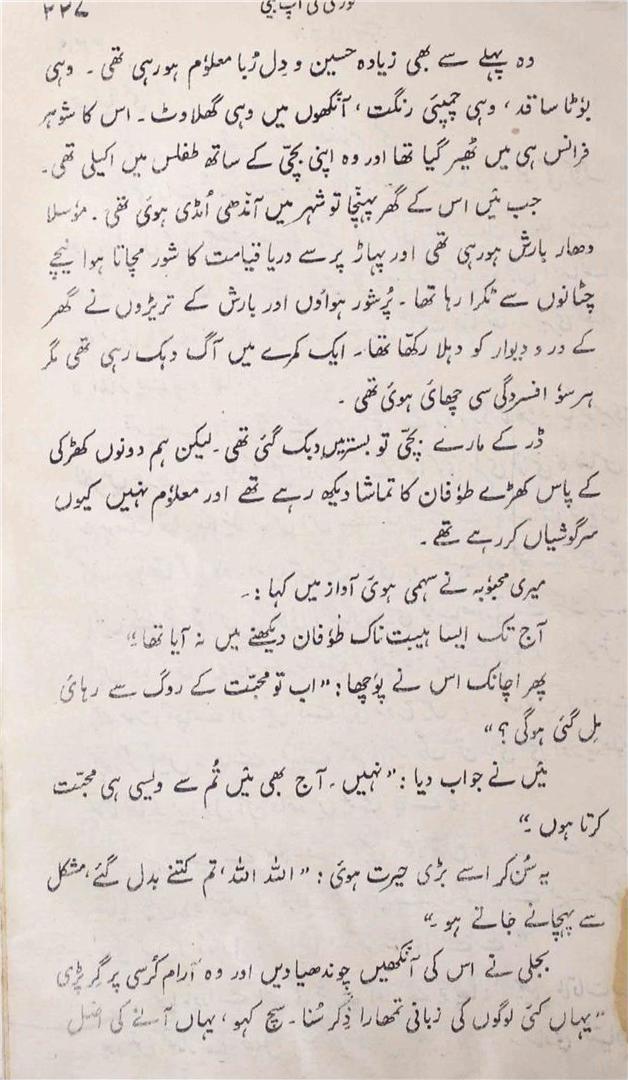 گورکی کی آپ بیتی ۲۲۷
وہ پہلے سے بھی زیادہ حسین و دِل رُبا معلوُم ہورہی تھی ۔ وہی
بوُٹا سا قد ، وہی چمپئی رنگت ، آنکھوں میں وہی گھلاوٹ ۔ اس کا شوہر
فرانس ہی میں ٹھیر گیا تھا اور وہ اپنی بچّی کے ساتھ طفلس میں اکیلی تھی ۔
جب مَیں اس کے گھر پہنچا تو شہر میں آندھی اُمڈی ہوئی تھی . موُسلا
دھار بارش ہورہی تھی اور پہاڑ پر سے دریا قیامت کا شور مچاتا ہوا نیچے
چٹانوں سے ٹکرا رہا تھا ۔ پُرشور ہواوٴں اور بارش کے تریڑوں نے گھر
کے در و دیوار کو دہلا رکھّا تھا ۔ ایک کمرے میں آگ دہک رہی تھی مگر
ہر سوُ افسردگی سی چھائی ہوئی تھی ۔
ڈر کے مارے بچّی تو بستر میں دبک گئی تھی ۔ لیکن ہم دونوں کھڑکی
کے پاس کھڑے طوُفان کا تماشا دیکھ رہے تھے اور معلوُم نہیں کیوں
سرگوشیاں کررہے تھے ۔
میری محبوُبہ نے سہمی ہوئی آواز میں کہا : ۔
آج تک ایسا ہیبت ناک طوُفان دیکھنے میں نہ آیا تھا ۔“
پھر اچانک اس نے پوُچھا : ”اب تو محبّت کے روگ سے رہائی
مِل گئی ہوگی ؟ “
مَیں نے جواب دیا : ”نہیں ۔ آج بھی مَیں تُم سے ویسی ہی محبّت
کرتا ہوں ۔“
یہ سُن کر اسے بڑی حیرت ہوئی : ” اللہ اللہ ، تم کتنے بدل گئے ، مشکل
سے پہچانے جاتے ہو ۔“
بجلی نے اس کی آنکھیں چوندھیا دیں اور وہ آرام کرُسی پر گر پڑی
”یہاں کئی لوگوں کی زبانی تمھارا ذِکر سُنا ۔ سچ کہو ، یہاں آنے کی اصل